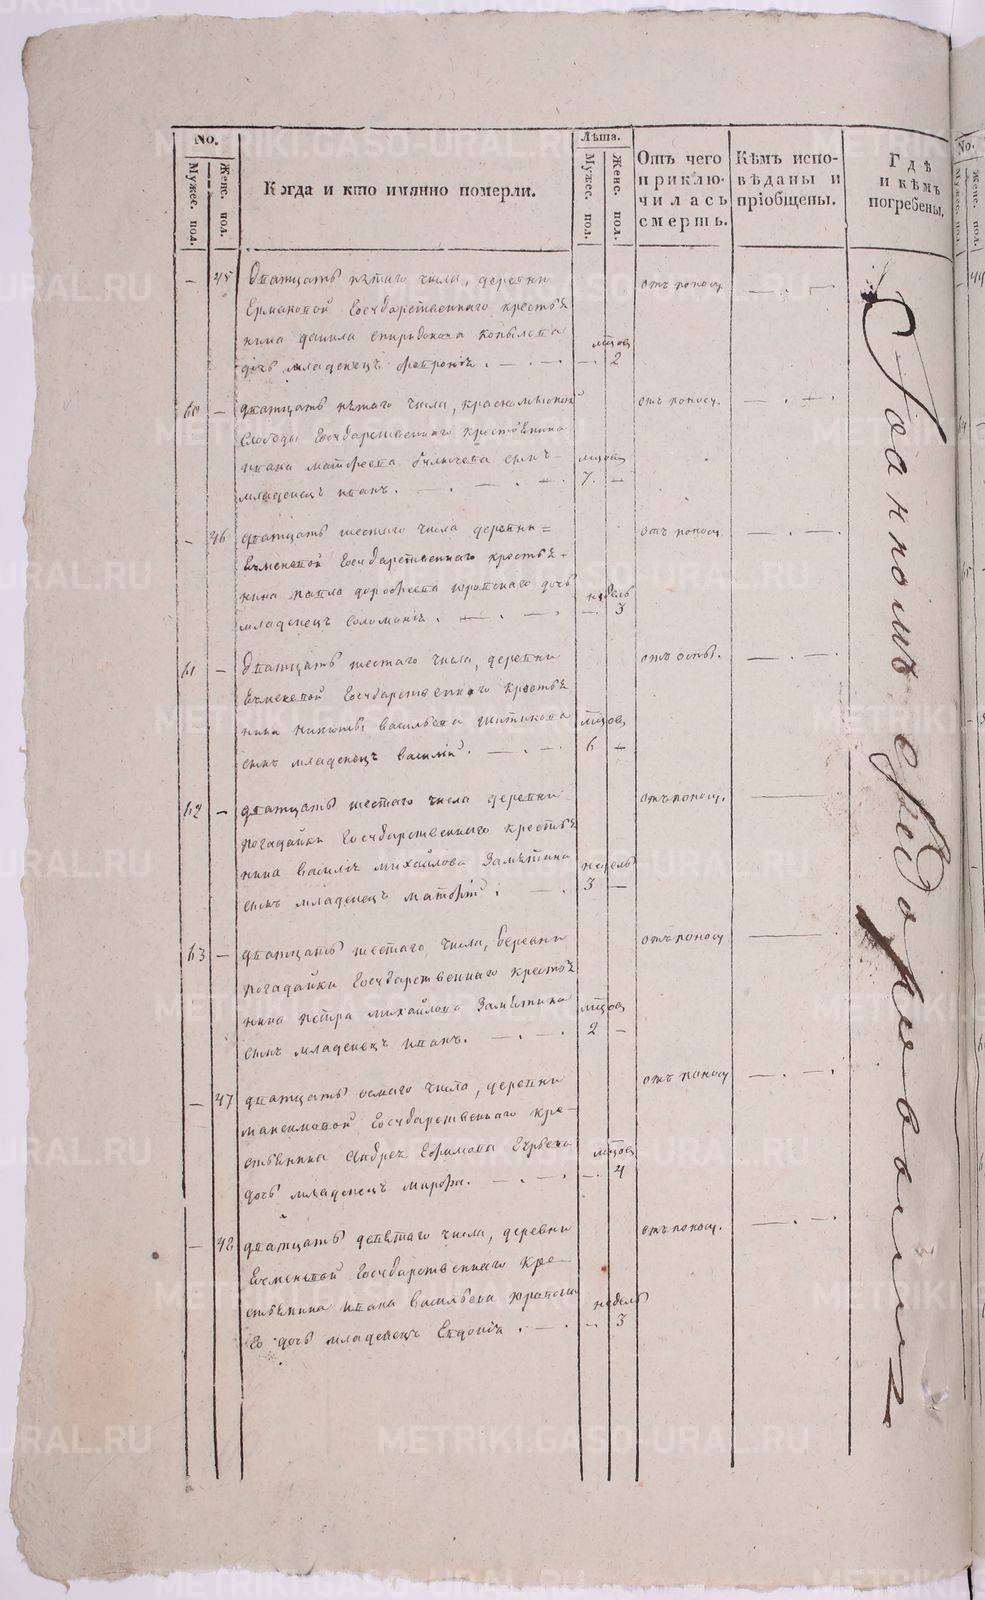 No.
Мужес. пол.
Женс. пол.
Когда и кто имянно померли.
Лѣта.
Мужес. пол.
Женс. пол.
Отъ чего приклю-
чилась
смерть.
Кѣмъ испо-
вѣданы и
пріобщены.
Гдѣ
и кѣмъ
погребены.
— 45 Дватцать пятаго числа, деревни
Ермаковой Государственнаго крестья
нина данила спиридонова Копылова
дочь младенецъ Фетронія.
мцовъ
— 2
отъ поносу
60 — дватцать пятаго числа,
слободы Государственнаго крестьянина
ивана матфеева сынъ
младенецъ иванъ.
мцовъ
7. —
отъ поносу.
— 46 дватцать шестаго числа деревни
Ячменевой Государственнаго крестья-
нина павла дорофеева юровскаго дочь
младенецъ соломанія.
недель
— 3
отъ поносу
61 — Дватцать шестаго числа, деревни
Ячменевой Государственнаго крестья
нина никиты васильева шитикова
сынъ младенецъ василій.
мцовъ
6 —
отъ оспы.
62 — дватцать шестаго числа деревни
погадайки Государственнаго крестья
нина василья михайлова Замятина
сынъ младенецъ матфей.
недель
3 —
отъ поносу.
63 — дватцать шестаго числа, деревни
погадайки Государственнаго крестья
нина петра михайлова Замятина
сынъ младенецъ иванъ.
мцовъ
2 —
отъ поносу
— 47 дватцать осмаго числа, деревни
максимовой Государственнаго кре-
стьянина андрея Ефимова
дочь младенецъ марфа.
мцовъ
— 4
отъ поносу
— 48 дватцать девятаго числа, деревни
Ячменевой Государственнаго кре-
стьянина ивана васильева юровска
го дочь младенецъ Евдокія.
недель
— 3
отъ поносу.
Іоанномъ
METRIKI.GASO-URAL.RU